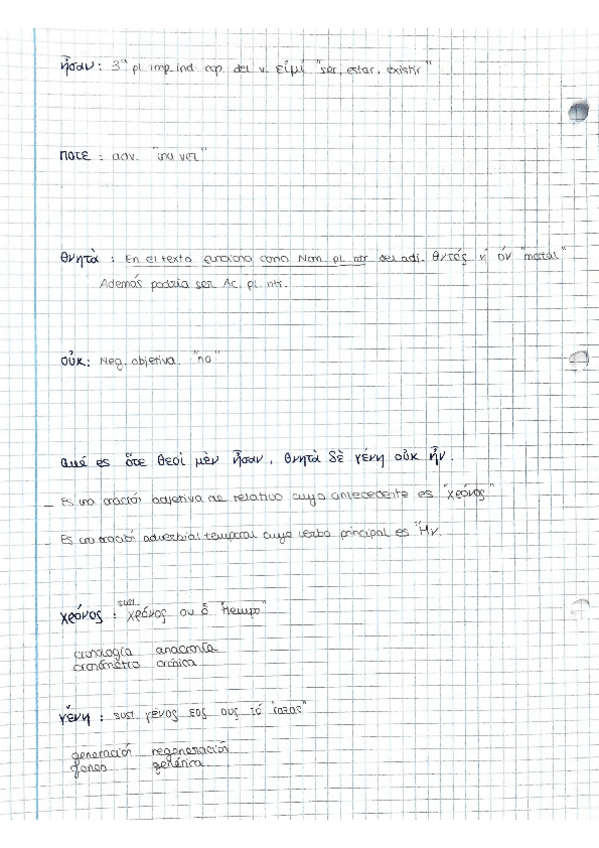 ἦσαν: 3ª pl. imp. ind. cop. del v. εἰμί "ser, estar, existir"
ποτε: adv. "una vez"
θνητὰ: En el texto funciona como Nom. pl. ntr. del adj. θντός ή όν "mortal"
Además podría ser Ac. pl. ntr.
οὐκ: Neg. objetiva. "no"
Qué es ὅτε θεοὶ μὲν ἦσαν, θνητὰ δὲ γένη οὐκ ἦν.
– Es una oración adjetiva de relativo cuyo antecedente es "χρόνος"
– Es una oración adverbial temporal cuyo verbo principal es "Ην.
sust.
χρόνος: χρόνος ου ὁ "tiempo"
cronología anacronía
cronómetro crónica
γένη: sust. γένος εος ους τό "razas"
generación regeneración
genes genérica